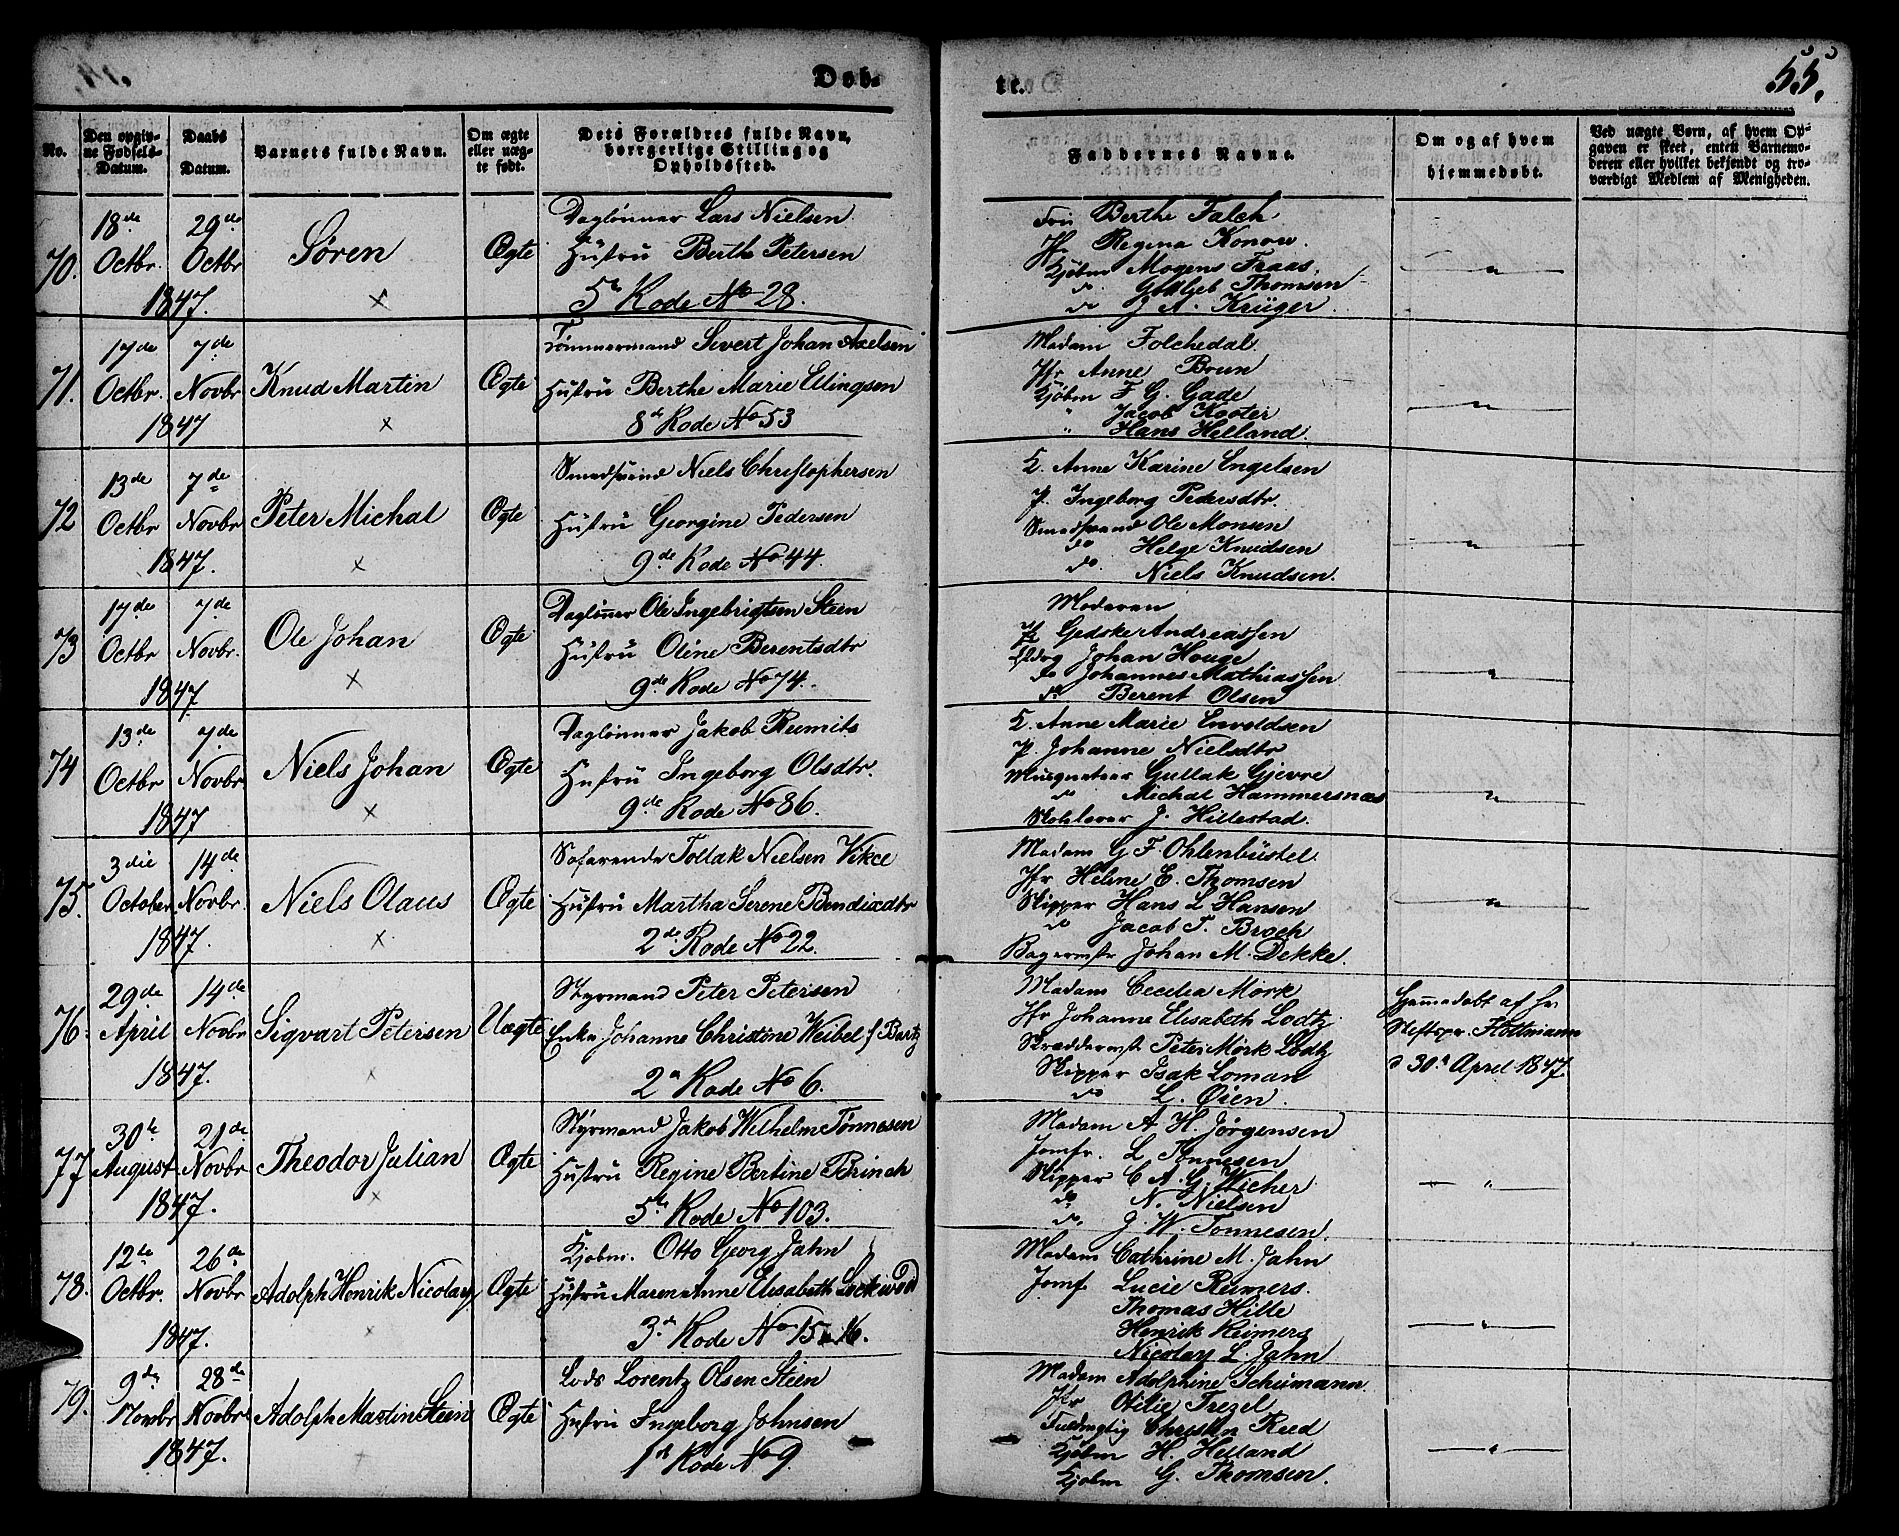 Døb- te. 55.
No.
Den opgiv-
ne Fødsels-
Datum.
Daabs
Datum.
Barnets fulde Navn.
Om ægte
eller uæg-
te født.
Dets Forældres fulde Navn,
borgerlige Stilling og
Opholdssted.
Faddernes Navne.
Om og af hvem
hjemmedøbt.
Ved uægte Børn, af hvem Op-
gaven er skeet, enten Barnemo-
deren eller hvilket bekjendt og tro-
værdigt Medlem af Menigheden.
70.
18de Octbr. 29de Octbr
1847.
Søren
x
Ægte
Daglønner Lars Nielsen
Hustru Berthe Petersen
5te Rode No 28.
Fru Berthe Falch
Jfr Regina Konow.
Kjøbm Mogens Fraas.
do Gottlieb Thomsen
do J. N. Krüger
"
71.
17de Octbr. 7de Novbr
1847
Knud Martin
x
Ægte
Tømmermand Sivert Johan Axelsen
Hustru Berthe Marie Ellingsen
8de Rode No 53
Madam Folchedal.
Jfr Anne Brun
Kjøbm F. G. Gade
" Jacob Kooter
" Hans Helland.
"
72
13de Octbr 7de Novbr
1847.
Peter Michal
x
Ægte
Smedsvend Niels Christophersen
Hustru Georgine Pedersen
9de Rode No 44.
K. Anne Karine Engelsen
P. Ingeborg Pedersdtr.
Smedsvend Ole Monsen
do Helge Knudsen
do Niels Knudsen.
"
73
17de Octbr 7de Novbr.
1847
Ole Johan
x
Ægte
Daglønner Ole Ingebrigtsen Steen
Hustru Oline Berentsdtr
9de Rode No 74.
Moderen
P. Gedske Andreassen
Johan Houge
do Johannes Mathiassen
do Berent Olsen
"
74
13de Octbr 7de Novbr
1847
Niels Johan
x
Ægte
Daglønner Jakob Reemits
Hustru Ingeborg Olsdtr.
9de Rode No 86.
K. Anne Marie Envoldsen
P. Johanne Nielsdtr
Musqueteer Gullak Gjevre
do Michal Hammersnæs
J. Hillestad.
"
75.
3die October 14de Novbr.
1847.
Niels Olaus
x
Ægte
Søfarende Tollak Nielsen Vikce
Hustru Martha Serene Bendixdtr
2de Rode No 22.
Madam G F. Ohlenbüstel.
Jfr Helene E. Thomsen
Skipper Hans L Hansen
do Jacob T. Broch
Bagermstr Johan M. Dekke.
"
76.
29de April 14de Novbr
1847.
Sigvart Petersen
x
Uægte
Styrmand Peter Petersen
Enke Johanne Christone Weibel f Bartz
2de Rode No 6.
Madam Cecilia Mörk
Jfr Johanne Elisabeth Lodtz
Skræddermstr Peter Mörk Lodtz
Skipper Isak Loman
do L. Øien.
Hjemmedøbt af Hr
Stiftspr. Flottmann
d 30te April 1847.
77
30te August 21de Novbr
1847.
Theodor Julian
x
Ægte
Styrmand Jakob Wilhelm Tönnesen
Hustru Regine Bertine Brinch
5te Rode No 103.
Madam A H. Jörgensen
Jomfr. L Tönnesen
Skipper C. A. G. Wicher
do N. Nielsen
do J. W. Tonnesen.
"
78.
12te Octbr. 26de Novbr
1847.
Adolph Henrik Nicolay
x
Ægte
Kjøbm. Otto Georg Jahn
Hustru Maren Anne Elisabeth Lockwood
3de Rode No 15 & 16.
Madam Cathrine M. Jahn
Jomf. Lucie Reimers.
Thomas Hille
Henrik Reimers
Nicolay L. Jahn
"
79.
9de Novbr 28de Novbr
1847.
Adolph Martin Steen
x
Ægte
Lods Lorentz Olsen Steen
Hustru Ingeborg Johnsen
1ste Rode No 9.
Madam Adolphine Schumann
Jfr Otilie Trezel
Fuldmægtig Christen Rieed
Kjøbm H. Helland
Kjøbm G. Thomsen.
"